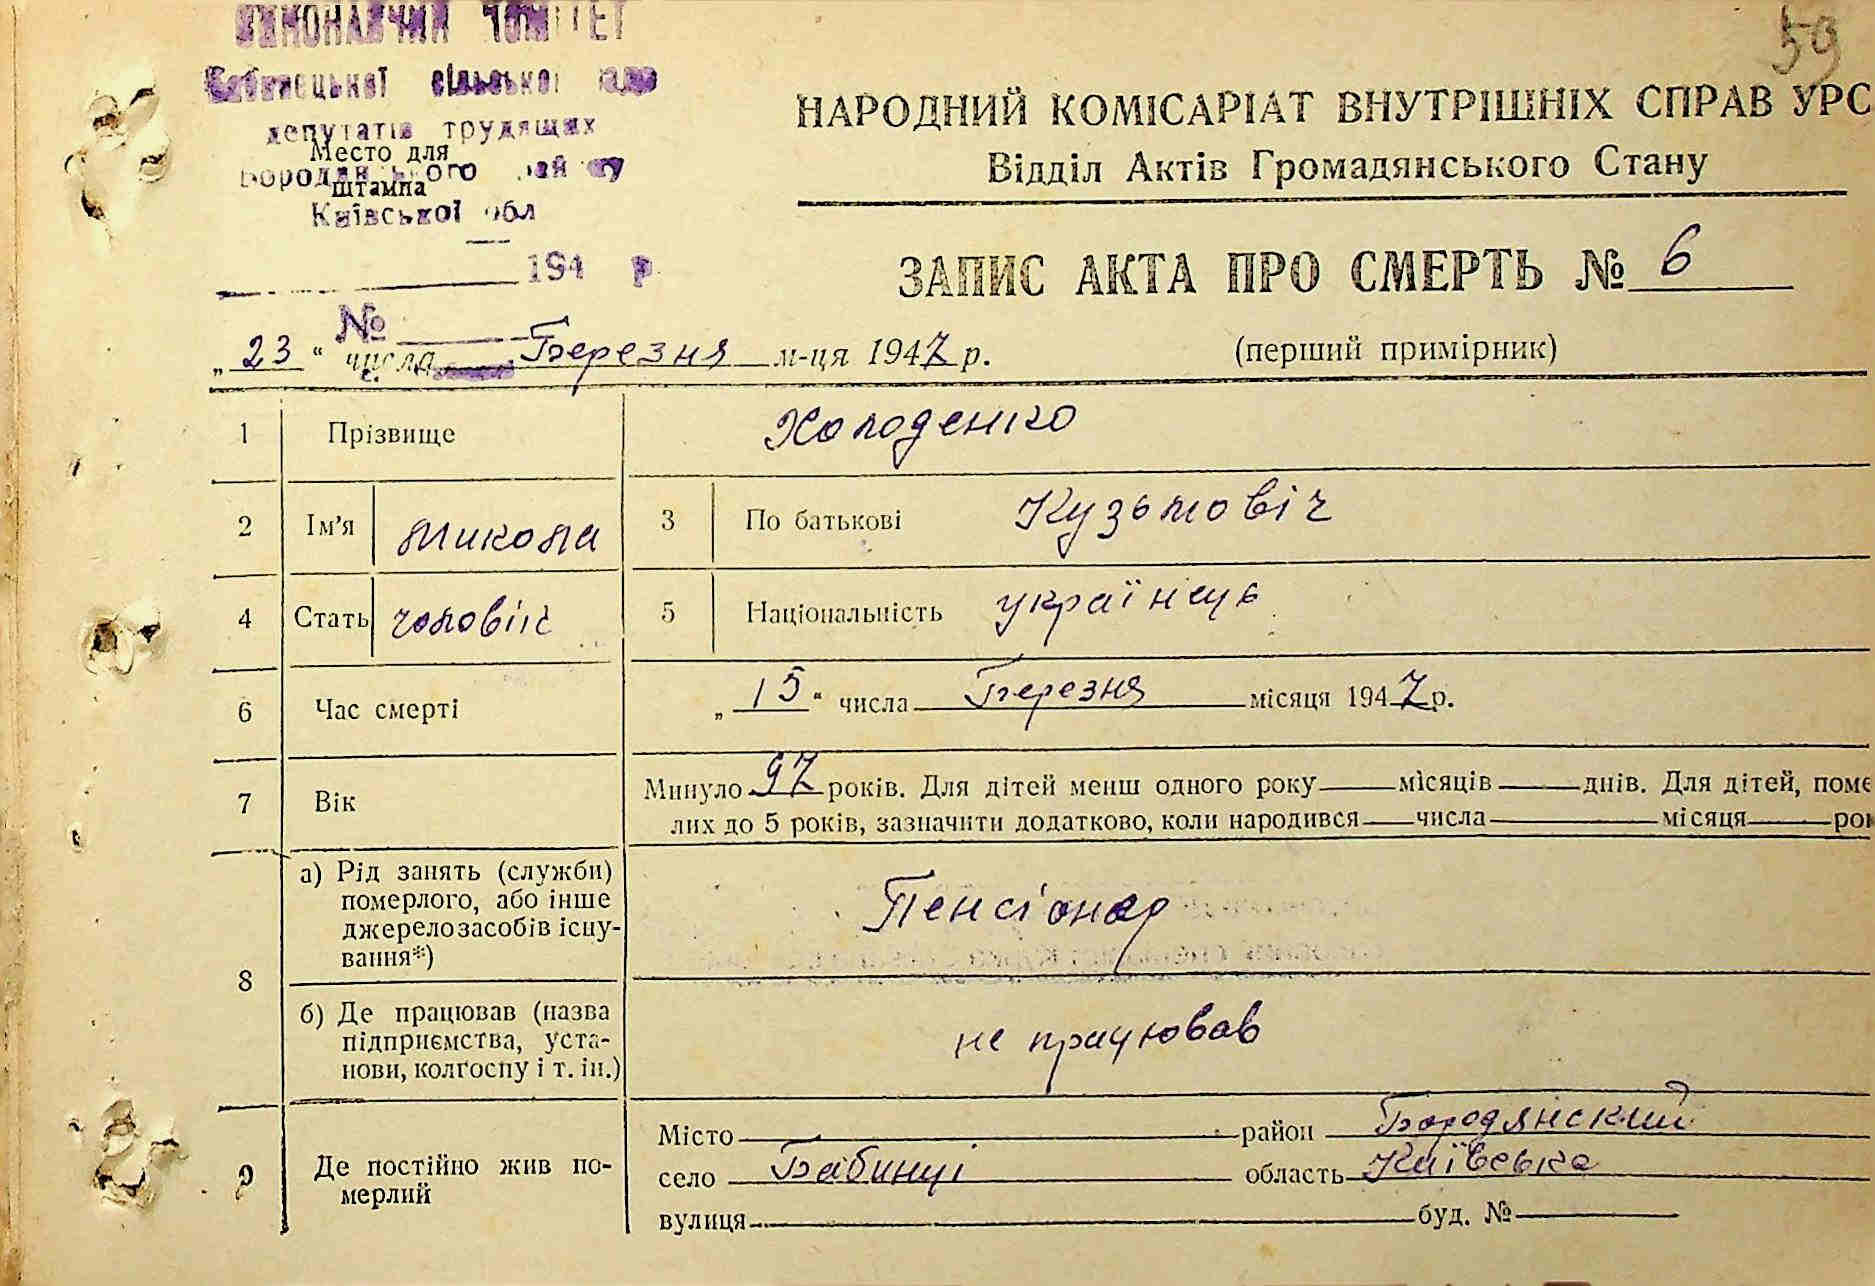 59
ВИКОНАВЧИЙ КОМІТЕТ
Бабинецької сільської ради
депутатів трудящих
Место для
Бородянського району
штампа
Київської обл
194 р.
№
НАРОДНИЙ КОМІСАРІАТ ВНУТРІШНІХ СПРАВ УРС
Відділ Актів Громадянського Стану
ЗАПИС АКТА ПРО СМЕРТЬ № 6
„23“ числа Березня м-ця 1947 р. (перший примірник)
1 Прізвище Холоденко
2 Ім'я Микола 3 По батькові Кузьмовіч
4 Стать чоловіч 5 Національність українець
6 Час смерті „15“ числа Березня місяця 1947 р.
7 Вік Минуло 97 років. Для дітей менш одного року місяців днів. Для дітей, поме
лих до 5 років, зазначити додатково, коли народився числа місяця рок
8 а) Рід занять (служби)
померлого, або інше
джерело засобів існу-
вання*)
Пенсіонер
б) Де працював (назва
підприємства, уста-
нови, колгоспу і т. ін.)
не працював
9 Де постійно жив по-
мерлий
Місто район Бородянский
село Бабинці область Київська
вулиця буд. №